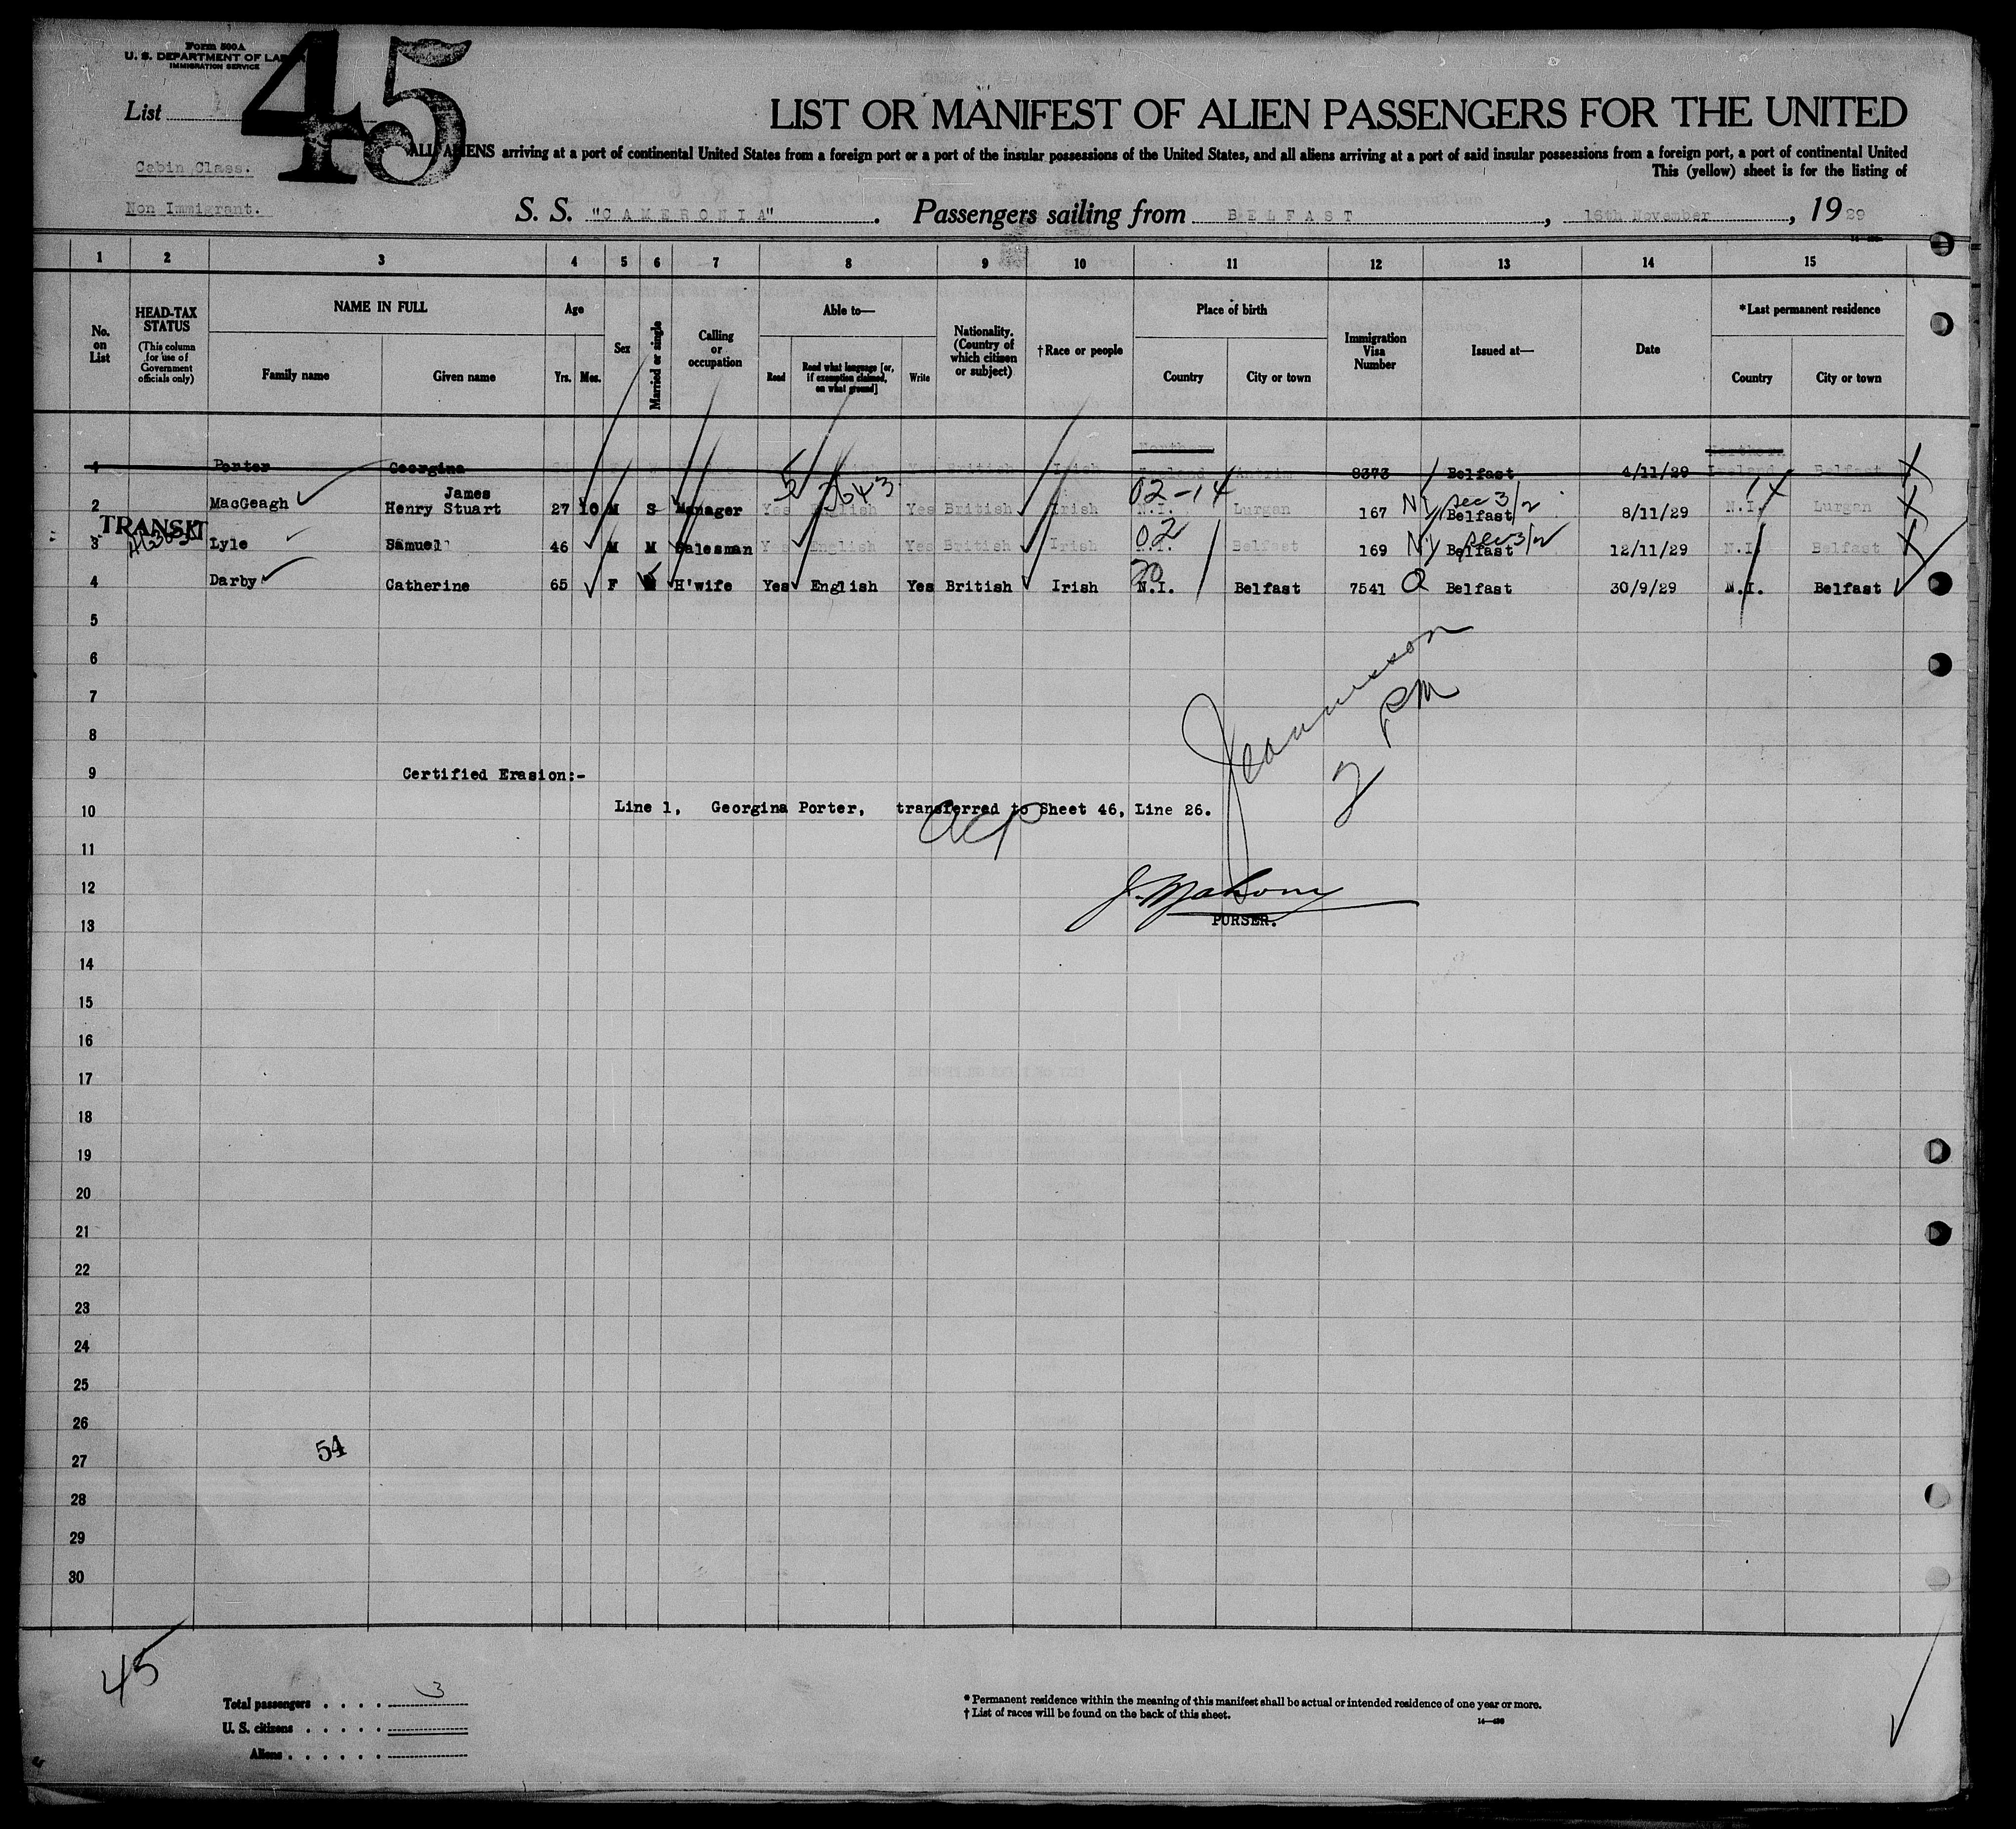 Form 500A
U. S. DEPARTMENT OF LABOR
IMMIGRATION SERVICE
45
List
LIST OR MANIFEST OF ALIEN PASSENGERS FOR THE UNITED
ALL ALIENS arriving at a port of continental United States from a foreign port or a port of the insular possessions of the United States, and all aliens arriving at a port of said insular possessions from a foreign port, a port of continental United
Cabin Class.
This (yellow) sheet is for the listing of
Non Immigrant.
S. S. "CAMERONIA". Passengers sailing from BELFAST, 16th November, 1929
1 2 3 4 5 6 7 8 9 10 11 12 13 14 15
No. on List
HEAD-TAX STATUS (This column for use of Government officials only)
NAME IN FULL
Family name Given name
Age
Yrs. Mos.
Sex
Married or single
Calling or occupation
Able to—
Read Read what language [or, if exemption claimed, on what ground] Write
Nationality. (Country of which citizen or subject)
†Race or people
Place of birth
Country City or town
Immigration Visa Number
Issued at—
Date
*Last permanent residence
Country City or town
Northern Northern
1 Porter Georgina Yes British Irish Ireland Antrim 8373 Belfast 4/11/29 Ireland Belfast
5 3643 02-14 NY Sec 3/2 14
James
2 MacGeagh Henry Stuart 27 10 M S Manager Yes English Yes British Irish N.I. Lurgan 167 Belfast 8/11/29 N.I. Lurgan
TRANSIT
02 NY Sec 3/2
3 Lyle Samuel 46 M M Salesman Yes English Yes British Irish N.I. Belfast 169 Belfast 12/11/29 N.I. Belfast
20
4 Darby Catherine 65 F M H'wife Yes English Yes British Irish N.I. Belfast 7541 Q Belfast 30/9/29 N.I. Belfast
5
6
7
8
2 PM
9 Certified Erasion:-
10 Line 1, Georgina Porter, transferred to Sheet 46, Line 26.
11
12
PURSER.
13
14
15
16
17
18
19
20
21
22
23
24
25
26
54
27
28
29
30
45
Total passengers . . . . 3
U. S. citizens . . . . .
Aliens . . . . . .
* Permanent residence within the meaning of this manifest shall be actual or intended residence of one year or more.
† List of races will be found on the back of this sheet.